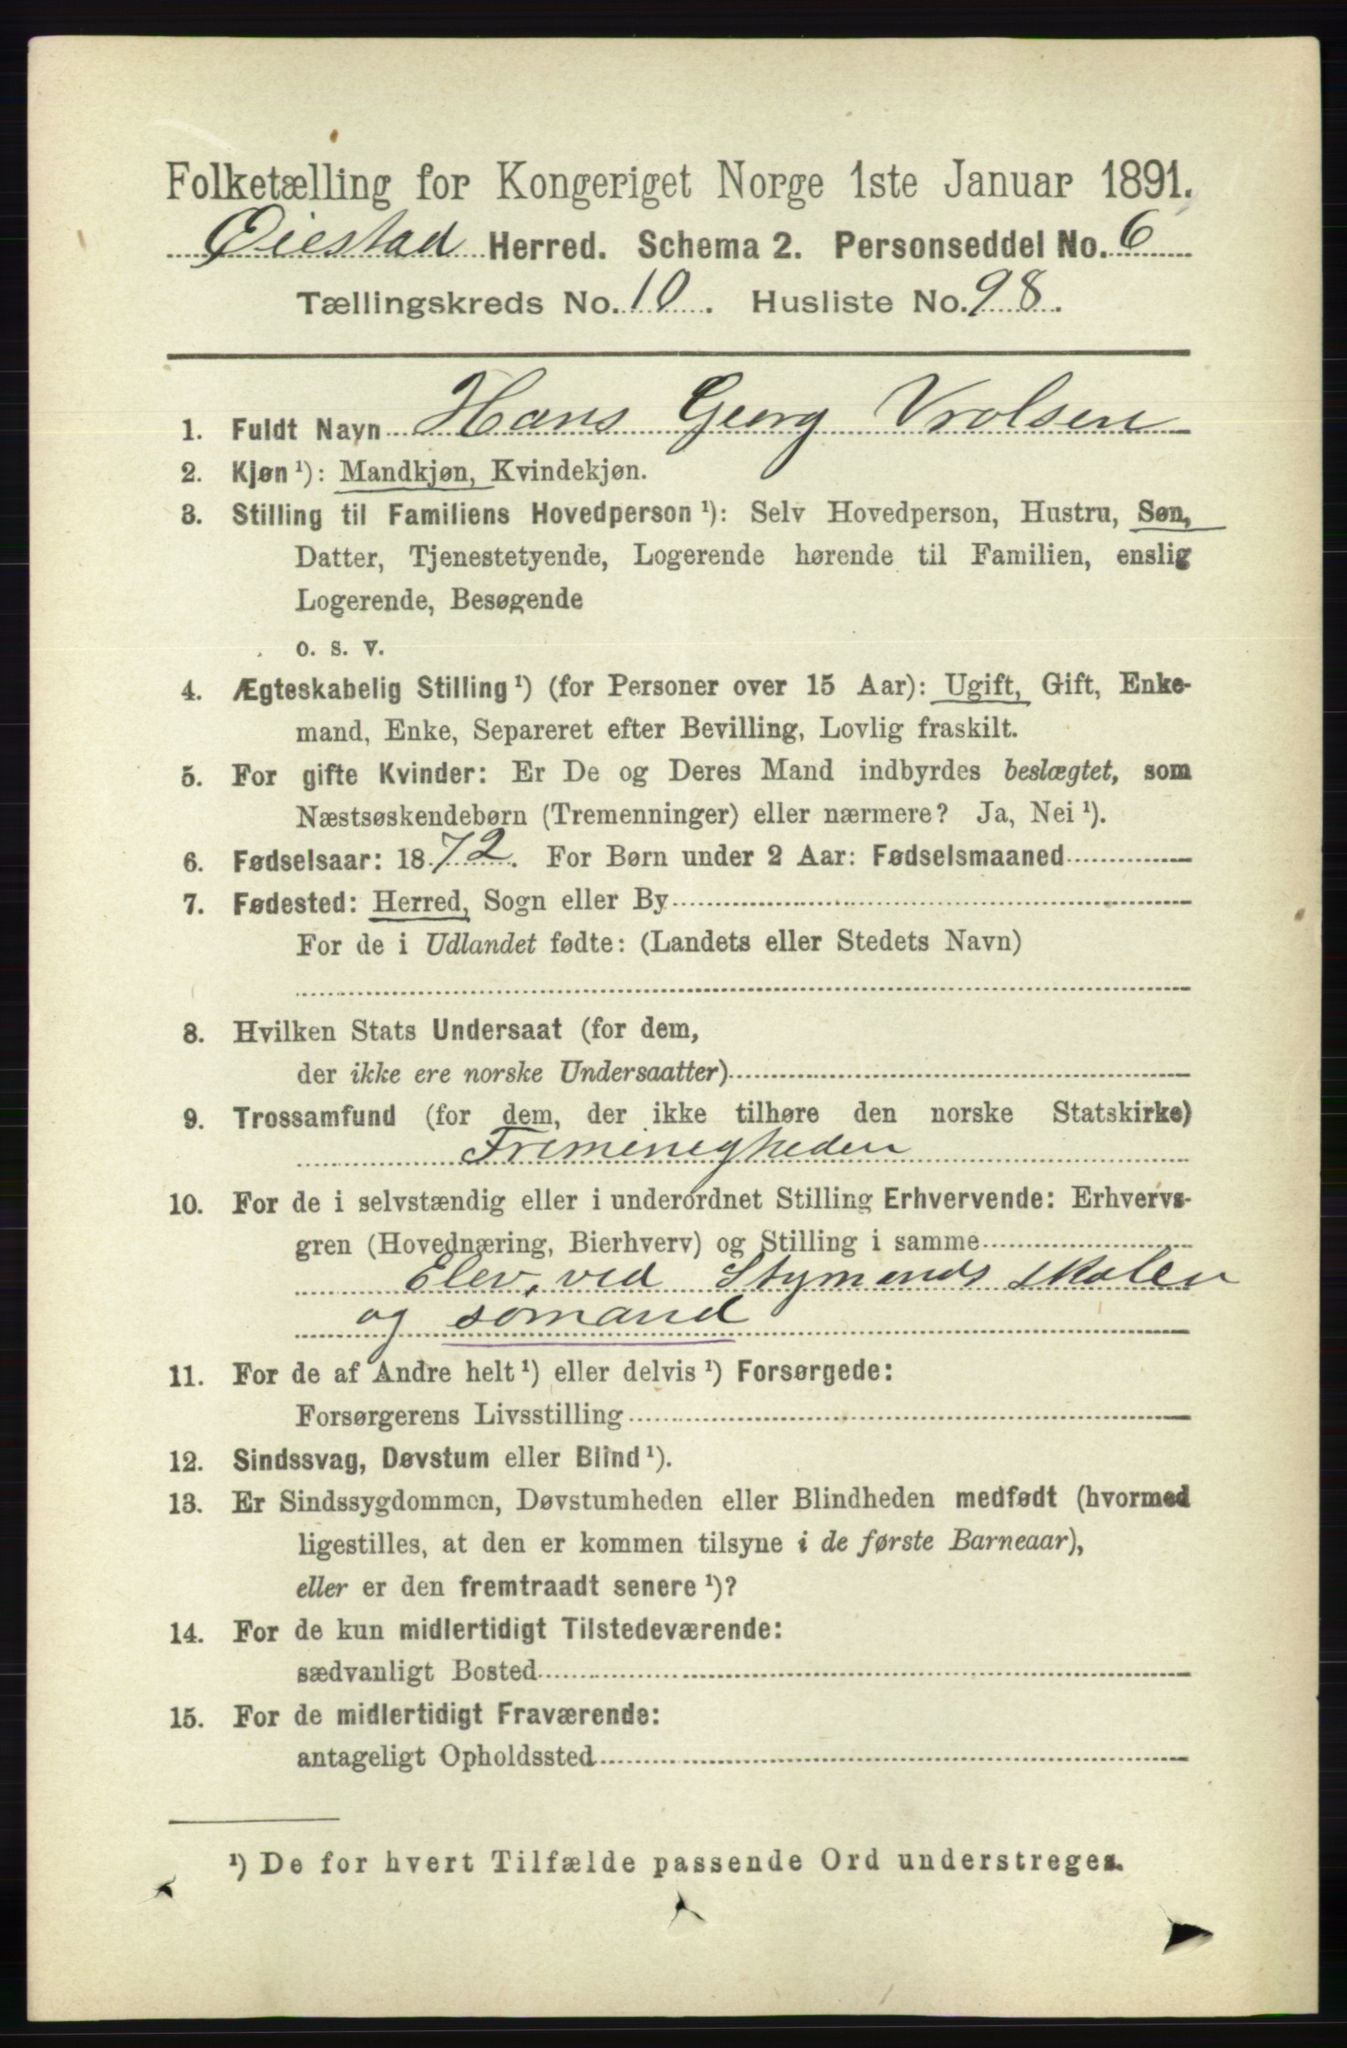 Folketælling for Kongeriget Norge 1ste Januar 1891.
Øiestad Herred. Schema 2. Personseddel No. 6
Tællingskreds No. 10. Husliste No. 98.
1. Fuldt Navn Hans Georg Vrolsen
2. Kjøn ¹): Mandkjøn, Kvindekjøn.
3. Stilling til Familiens Hovedperson ¹): Selv Hovedperson, Hustru, Søn,
Datter, Tjenestetyende, Logerende hørende til Familien, enslig
Logerende, Besøgende
o. s. v.
4. Ægteskabelig Stilling ¹) (for Personer over 15 Aar): Ugift, Gift, Enke-
mand, Enke, Separeret efter Bevilling, Lovlig fraskilt.
5. For gifte Kvinder: Er De og Deres Mand indbyrdes beslægtet, som
Næstsøskendebørn (Tremenninger) eller nærmere? Ja, Nei ¹).
6. Fødselsaar: 1872. For Børn under 2 Aar: Fødselsmaaned
7. Fødested: Herred, Sogn eller By
For de i Udlandet fødte: (Landets eller Stedets Navn)
8. Hvilken Stats Undersaat (for dem,
der ikke ere norske Undersaatter)
9. Trossamfund (for dem, der ikke tilhøre den norske Statskirke)
Frimenigheden
10. For de i selvstændig eller i underordnet Stilling Erhvervende: Erhvervs-
gren (Hovednæring, Bierhverv) og Stilling i samme
Elev, ved Stymands skolen
og sømand
11. For de af Andre helt ¹) eller delvis ¹) Forsørgede:
Forsørgerens Livsstilling
12. Sindssvag, Døvstum eller Blind ¹).
13. Er Sindssygdommen, Døvstumheden eller Blindheden medfødt (hvormed
ligestilles, at den er kommen tilsyne i de første Barneaar),
eller er den fremtraadt senere ¹)?
14. For de kun midlertidigt Tilstedeværende:
sædvanligt Bosted
15. For de midlertidigt Fraværende:
antageligt Opholdssted
¹) De for hvert Tilfælde passende Ord understreges.